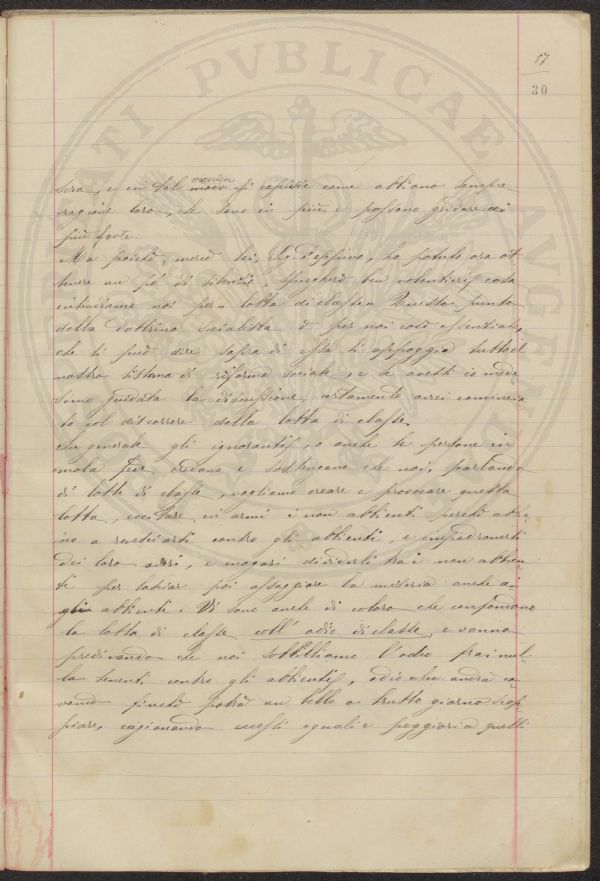 57
30
PVBLICAE
sera, e in tal modo maniera si capisce come abbiano sempre
ragione loro, che sono in più e possono gridare
più forte.
Ma poichè, mercè lei, Sig. Beppino, ho potuto ora ot
tenere un pò di silenzio, spiegherò ben volentieri cosa
intendiamo noi per lotta di classe. Questo punto
della dottrina socialista è per noi così essenziale,
che si può dire sopra di essa si appoggia tutto il
nostro sistema di riforma sociale, e se avessi io
guidata la discussione, certamente avrei comincia
to col discorrere della lotta di classe.
In generale gli ignoranti, o anche le persone in
mala fede, credono e sostengono che noi, parlando
di lotte di classe, vogliamo creare e provocare questa
lotta, eccitare, in armi i non abbienti perchè abbia
no a rovesciarsi contro gli abbienti, e impadronirsi
dei loro averi, e magari dividerli tra i non abbien
ti per lasciar poi assaggiare la miseria anche a
gli abbienti. Vi sono anche di coloro che confondono
la lotta di classe coll' odio di classe, e vanno
predicando che noi sobilliamo l'odio fra i nul-
la tenenti contro gli abbienti, odio che andrà
finchè potrà un bello o brutto giorno scop
piare, cagionando eccessi eguali e peggiori a quelli